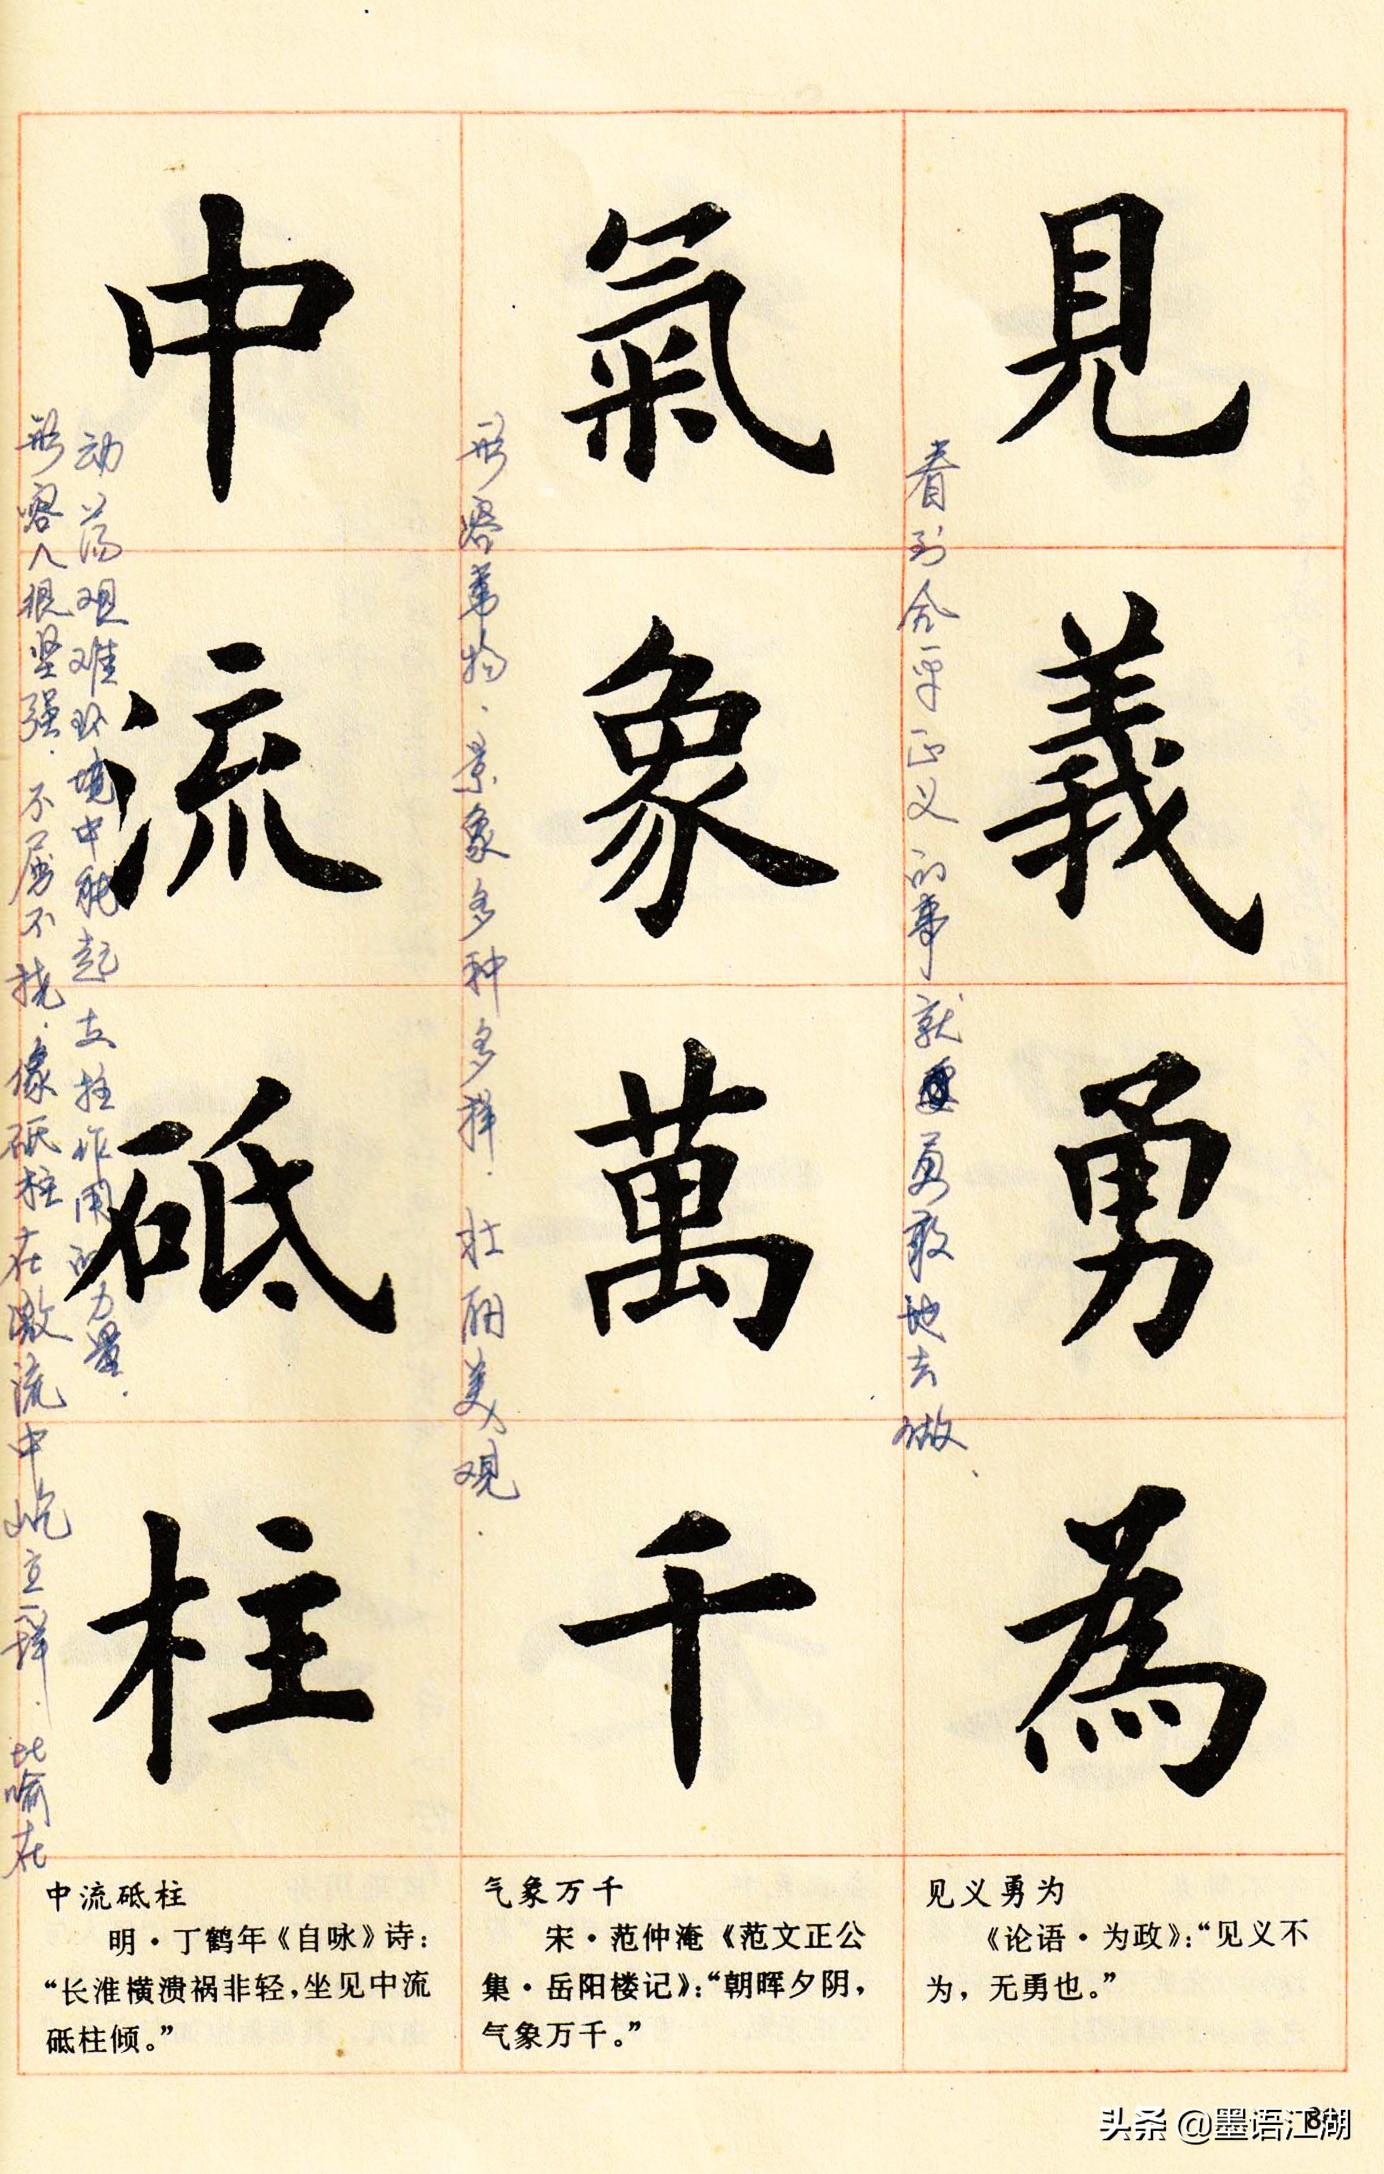 見義勇為
氣象萬千
中流砥柱
看到公平正义的事就勇敢地去做、
形容事物、景象多种多样、壮丽美观.
形容人很坚强、不屈不挠、像砥柱在激流中屹立一样、比喻在
动荡艰难环境中能起支柱作用的力量.
见义勇为
《论语·为政》：“见义不
为，无勇也。”
气象万千
宋·范仲淹《范文正公
集·岳阳楼记》：“朝晖夕阴，
气象万千。”
中流砥柱
明·丁鹤年《自咏》诗：
“长淮横溃祸非轻，坐见中流
砥柱倾。”
8
头条 @墨语江湖